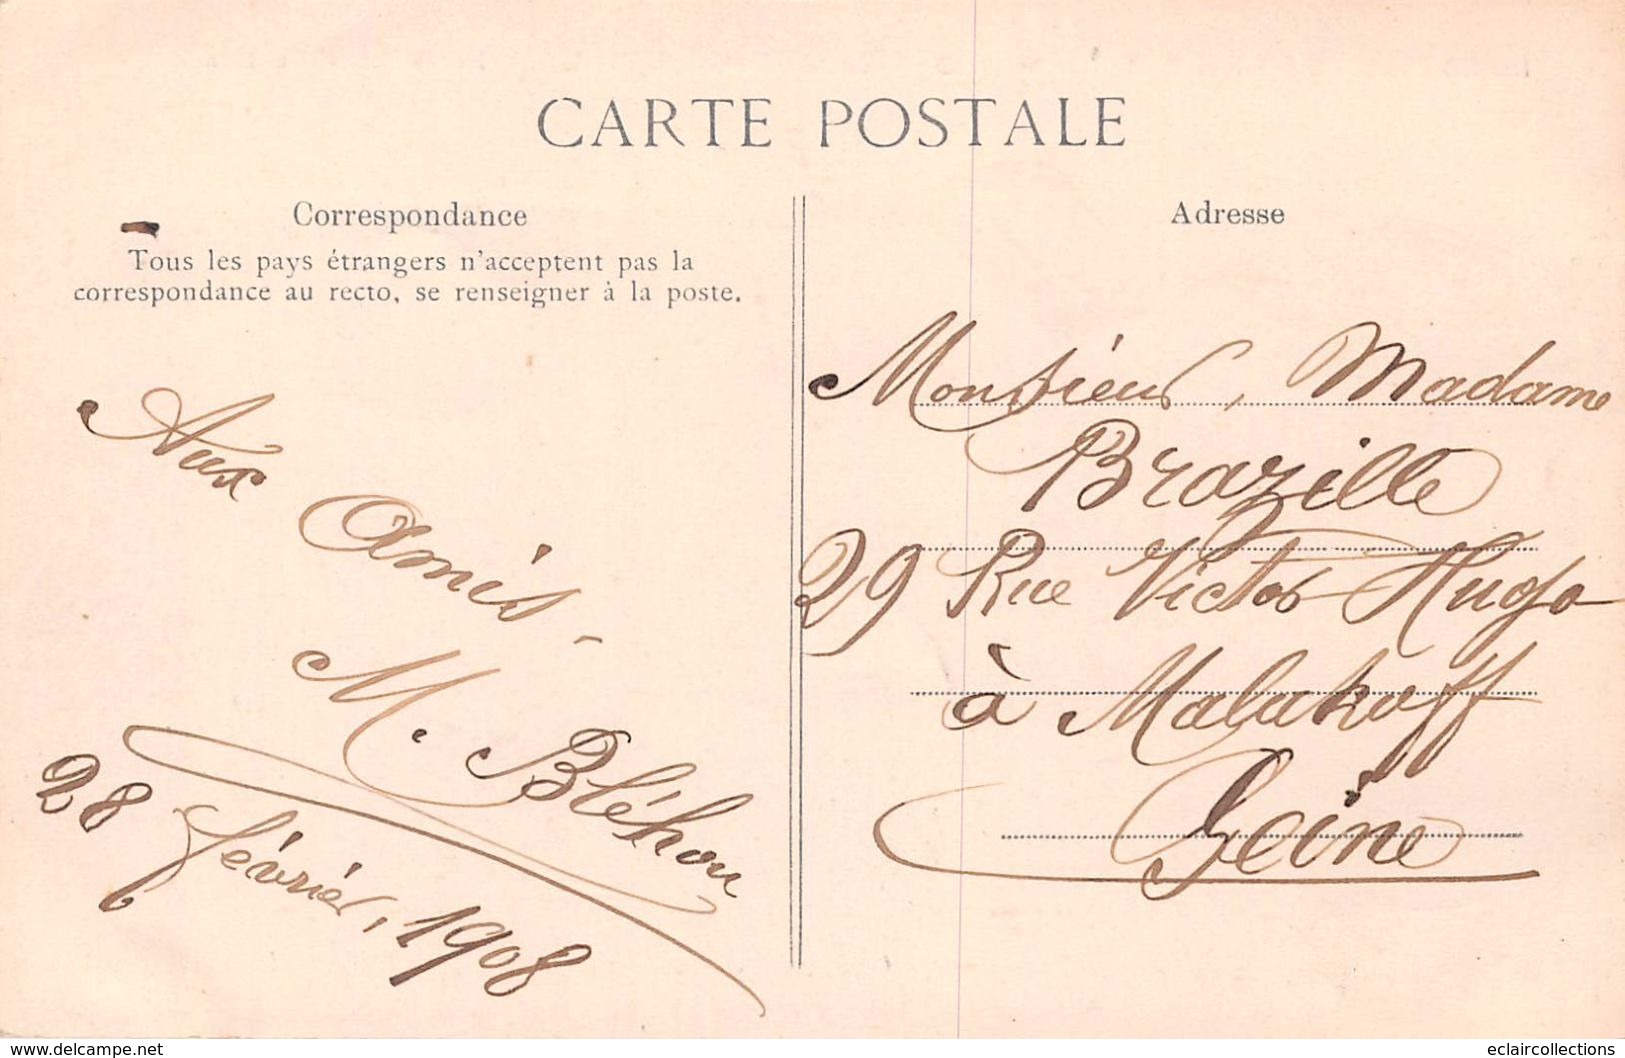 CARTE POSTALE
Correspondance
Tous les pays étrangers n'acceptent pas la
correspondance au recto, se renseigner à la poste.
Aux
Amis
M. Bléhou
28 février, 1908
Adresse
Monsieur, Madame
Brazille
29 Rue Victor Hugo
à Malakoff
Seine
www.delcampe.net
eclaircollections